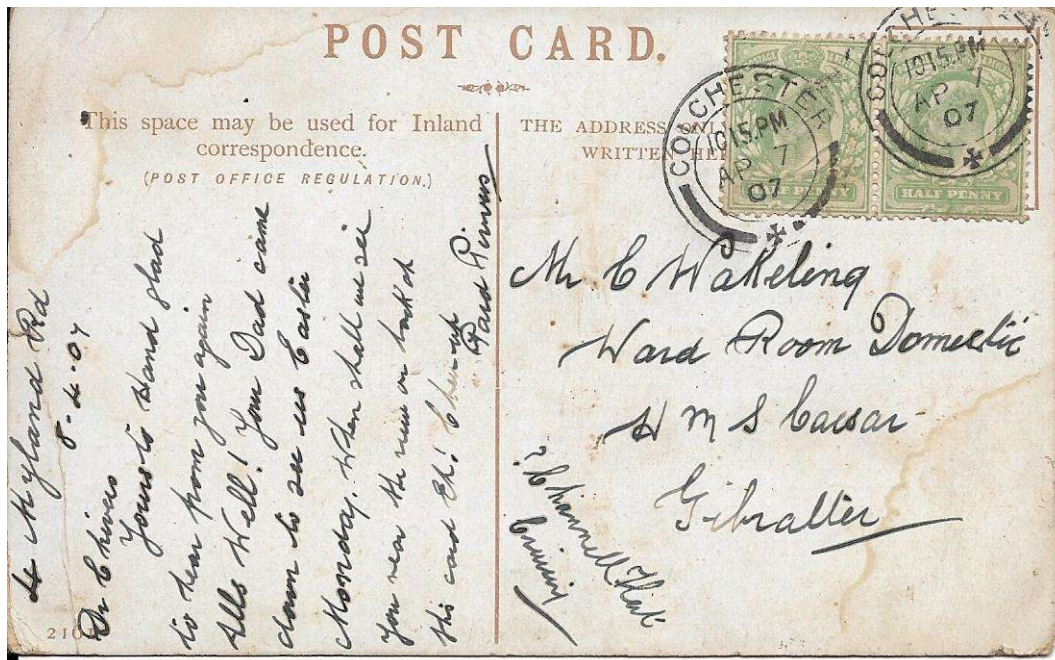 POST CARD.
This space may be used for Inland
correspondence.
(POST OFFICE REGULATION.)
THE ADDRESS ONL
WRITTEN HE
COLCHESTER
10 15.PM
AP 7
07
COLCHESTER
10 15.PM
AP 7
07
HALF PENNY
HALF PENNY
4 Myland Rd
8.4.07
Dr Chivas
Yours to Hand glad
to hear from you again
Alls Well! Your Dad came
down to see us Easter
Monday. When shall we see
you near the view on back of
this card Eh! Cheer up
Mr C Wakeling
Ward Room Domestic
H M S Caesar
Gibralter
? Channell Fleet
Cruising
210